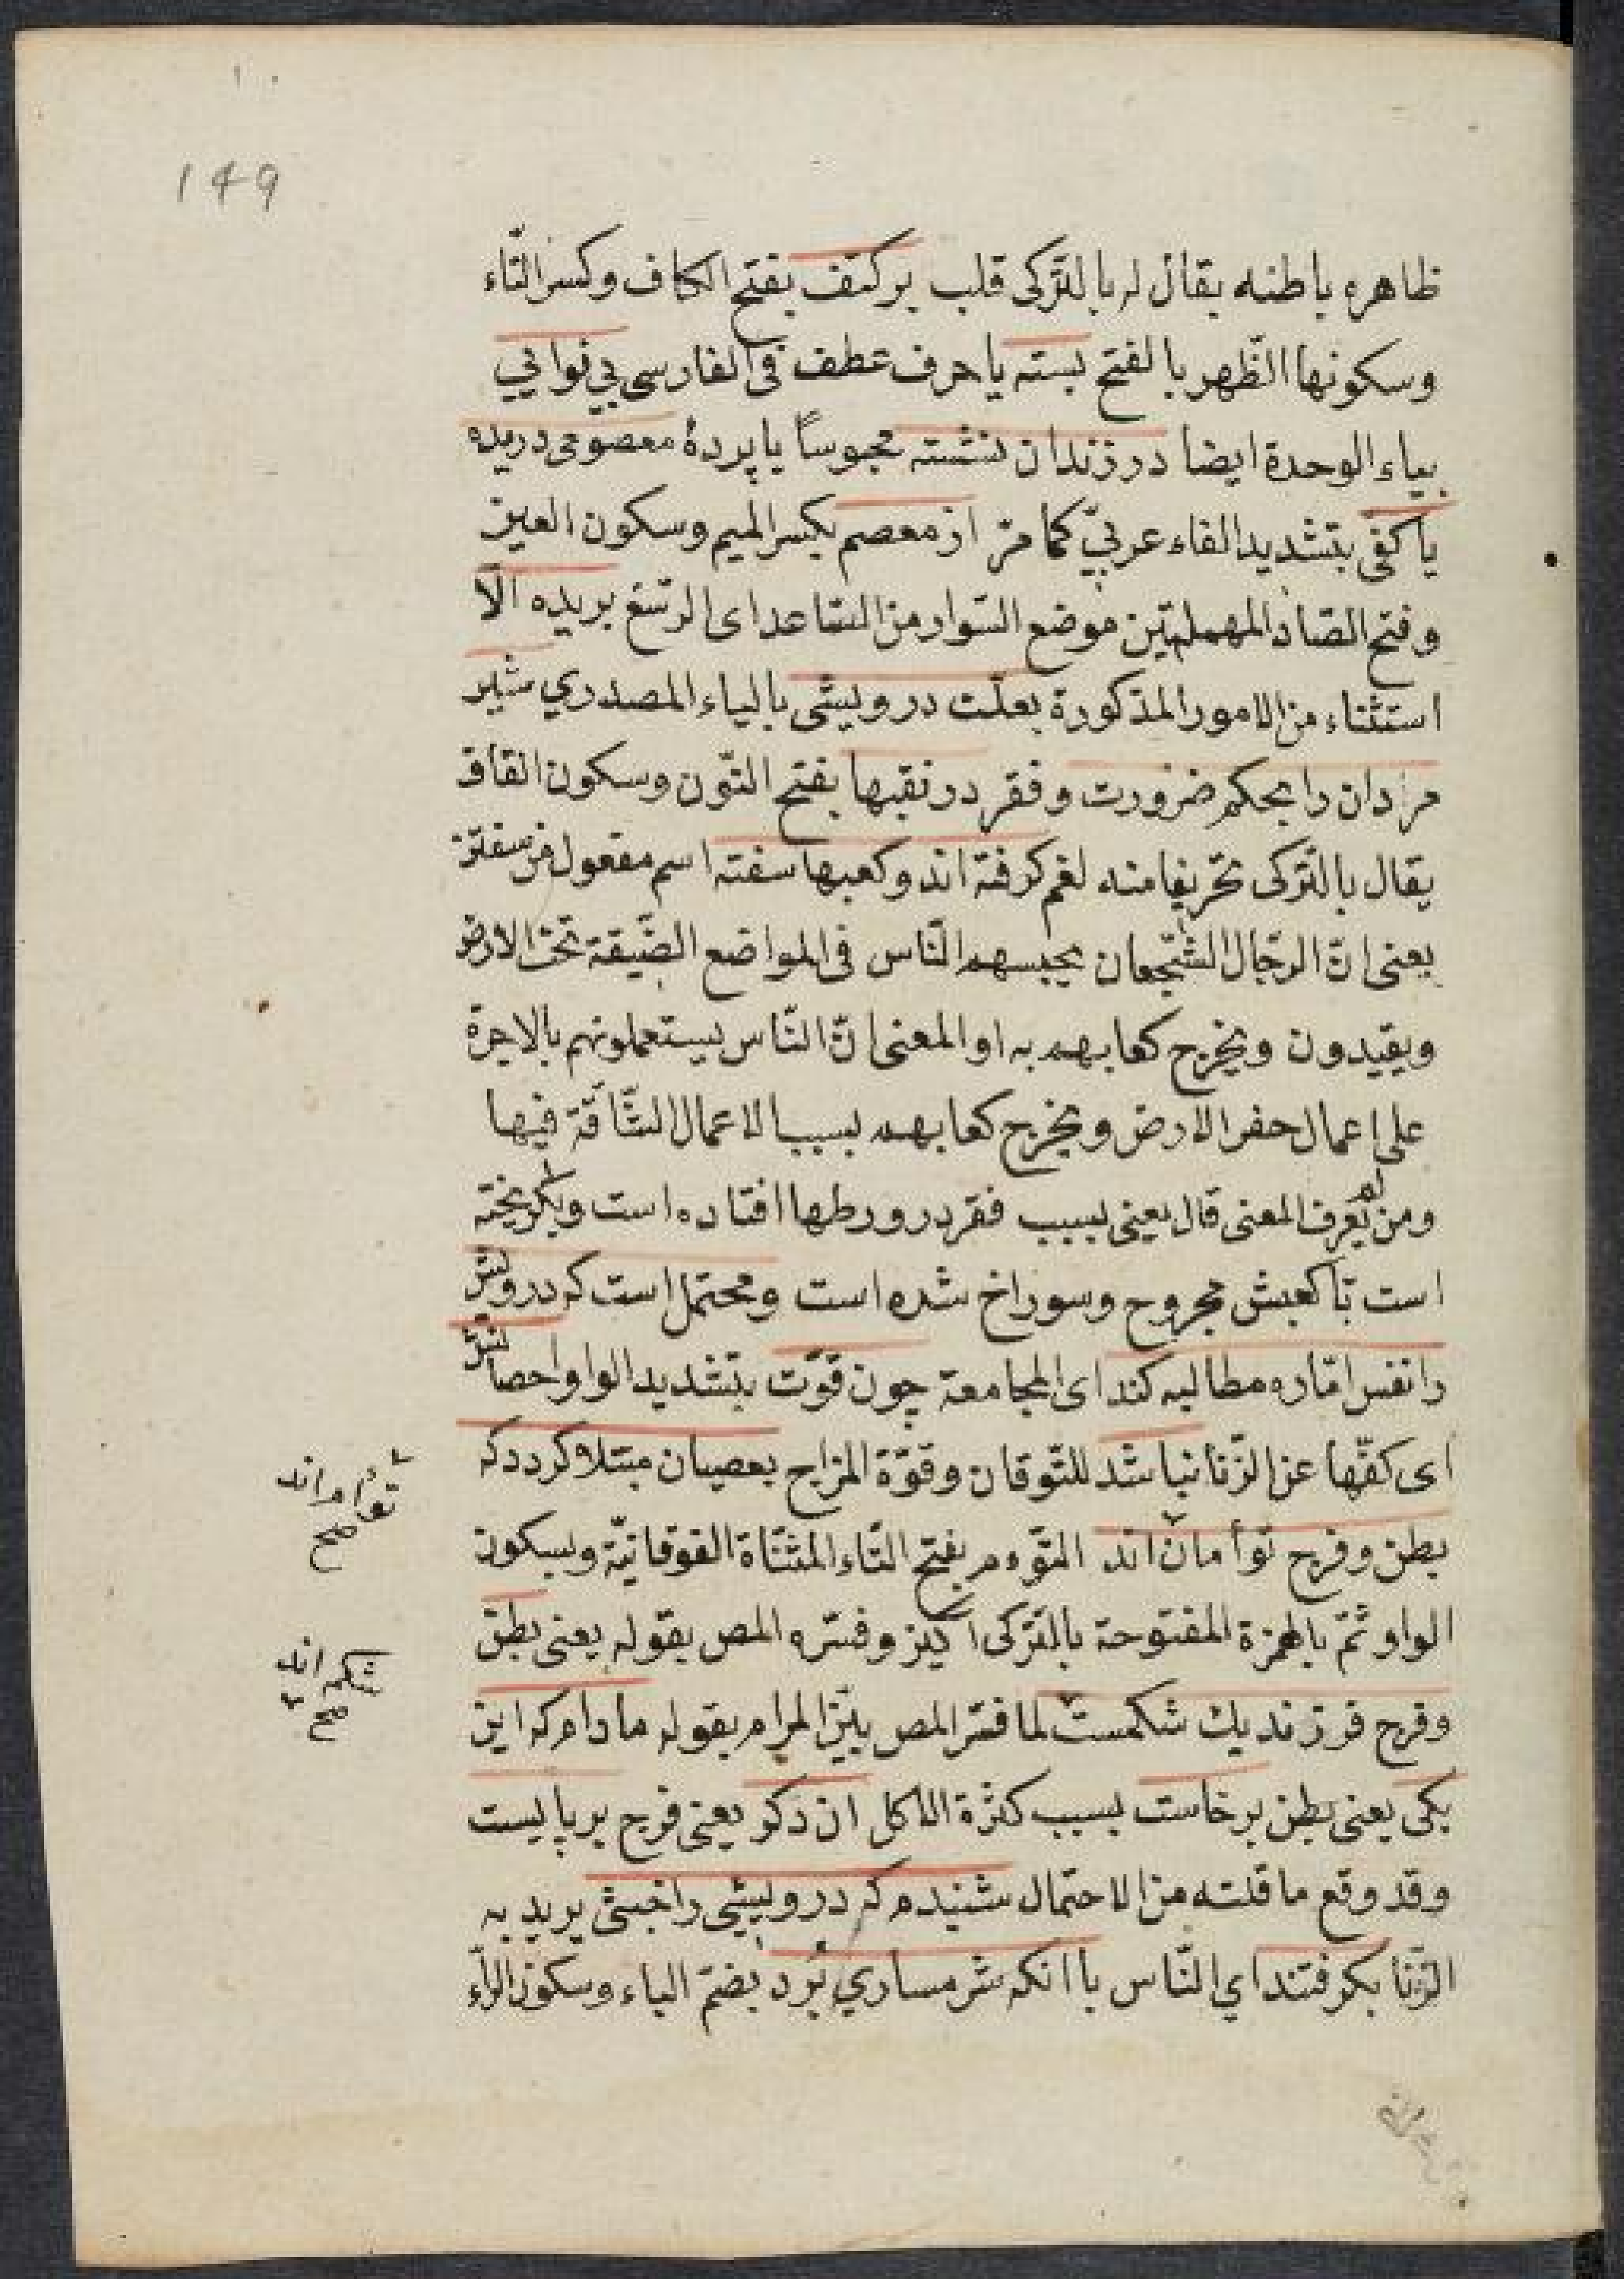 149
ظاهره باطنه يقال له بالتركى قلب بر كتف بفتح الكاف وكسر التّاء
وسكونها الظّهر بالفتح بسته يا حرف عطف فى الفارسى بي نوايي
بياء الوحدة ايضا در زندان نشسته محبوساً يا پردهٔ معصومى دريده
يا كفى بتشديد الفاء عربيّ كما مرّ از معصم بكسر الميم وسكون العين
وفتح الصّاد المهملتين موضع السّوار من السّاعد اى الرسّغ بريده الّا
استثناء من الامور المذكورة بعلّت درويشى بالياء المصدري شير
مردان را بحكم ضرورت وفقر در نقبها بفتح النّون وسكون القاف
يقال بالتّركى تحريفا منه لغم كرفته اند وكعبها سفته اسم مفعول من سفتن
يعنى انّ الرّجال الشّجعان يحبسهم النّاس فى المواضع الضّيقة تحت الارض
ويقيدون ويخرج كعابهم به او المعنى انّ النّاس يستعملونهم بالاجرة
على اعمال حفر الارض ويخرج كعابهم بسبب الاعمال الشّاقّة فيها
ومن لم يعرف المعنى قال يعنى بسبب فقر در ورطها افتاده است وبكريخته
است تا كعبش مجروح وسوراخ شده است ومحتمل است كه درويش
را نفس امّاره مطالبه كند اى المجامعة چون قوّت بتشديد الواو احصانش
اى كفّها عن الزّنا نباشد للتّوقان وقوّة المزاج بعصيان مبتلا كردد كه
بطن وفرج توأمان اند التّوءم بفتح التّاء المثنّاة الفوقانيّة وبسكون
الواو ثمّ بالهمزة المفتوحة بالتّركى اكيز وفسّره المص بقوله يعنى بطن
وفرج فرزند يك شكمست لما فسّر المص بيّن المرام بقوله مادام كه اين
يكى يعنى بطن برخاست بسبب كثرة الاكل ان دكر يعنى فرج بر پاييست
وقد وقع ما قلته من الاحتمال شنيدم كه درويشى را خبثى يريد به
الزّنا بكرفتند اي النّاس با انكه شرمساري بُرد بضمّ الباء وسكون الرّاء
توأم اند
صح
شكم اند
صح